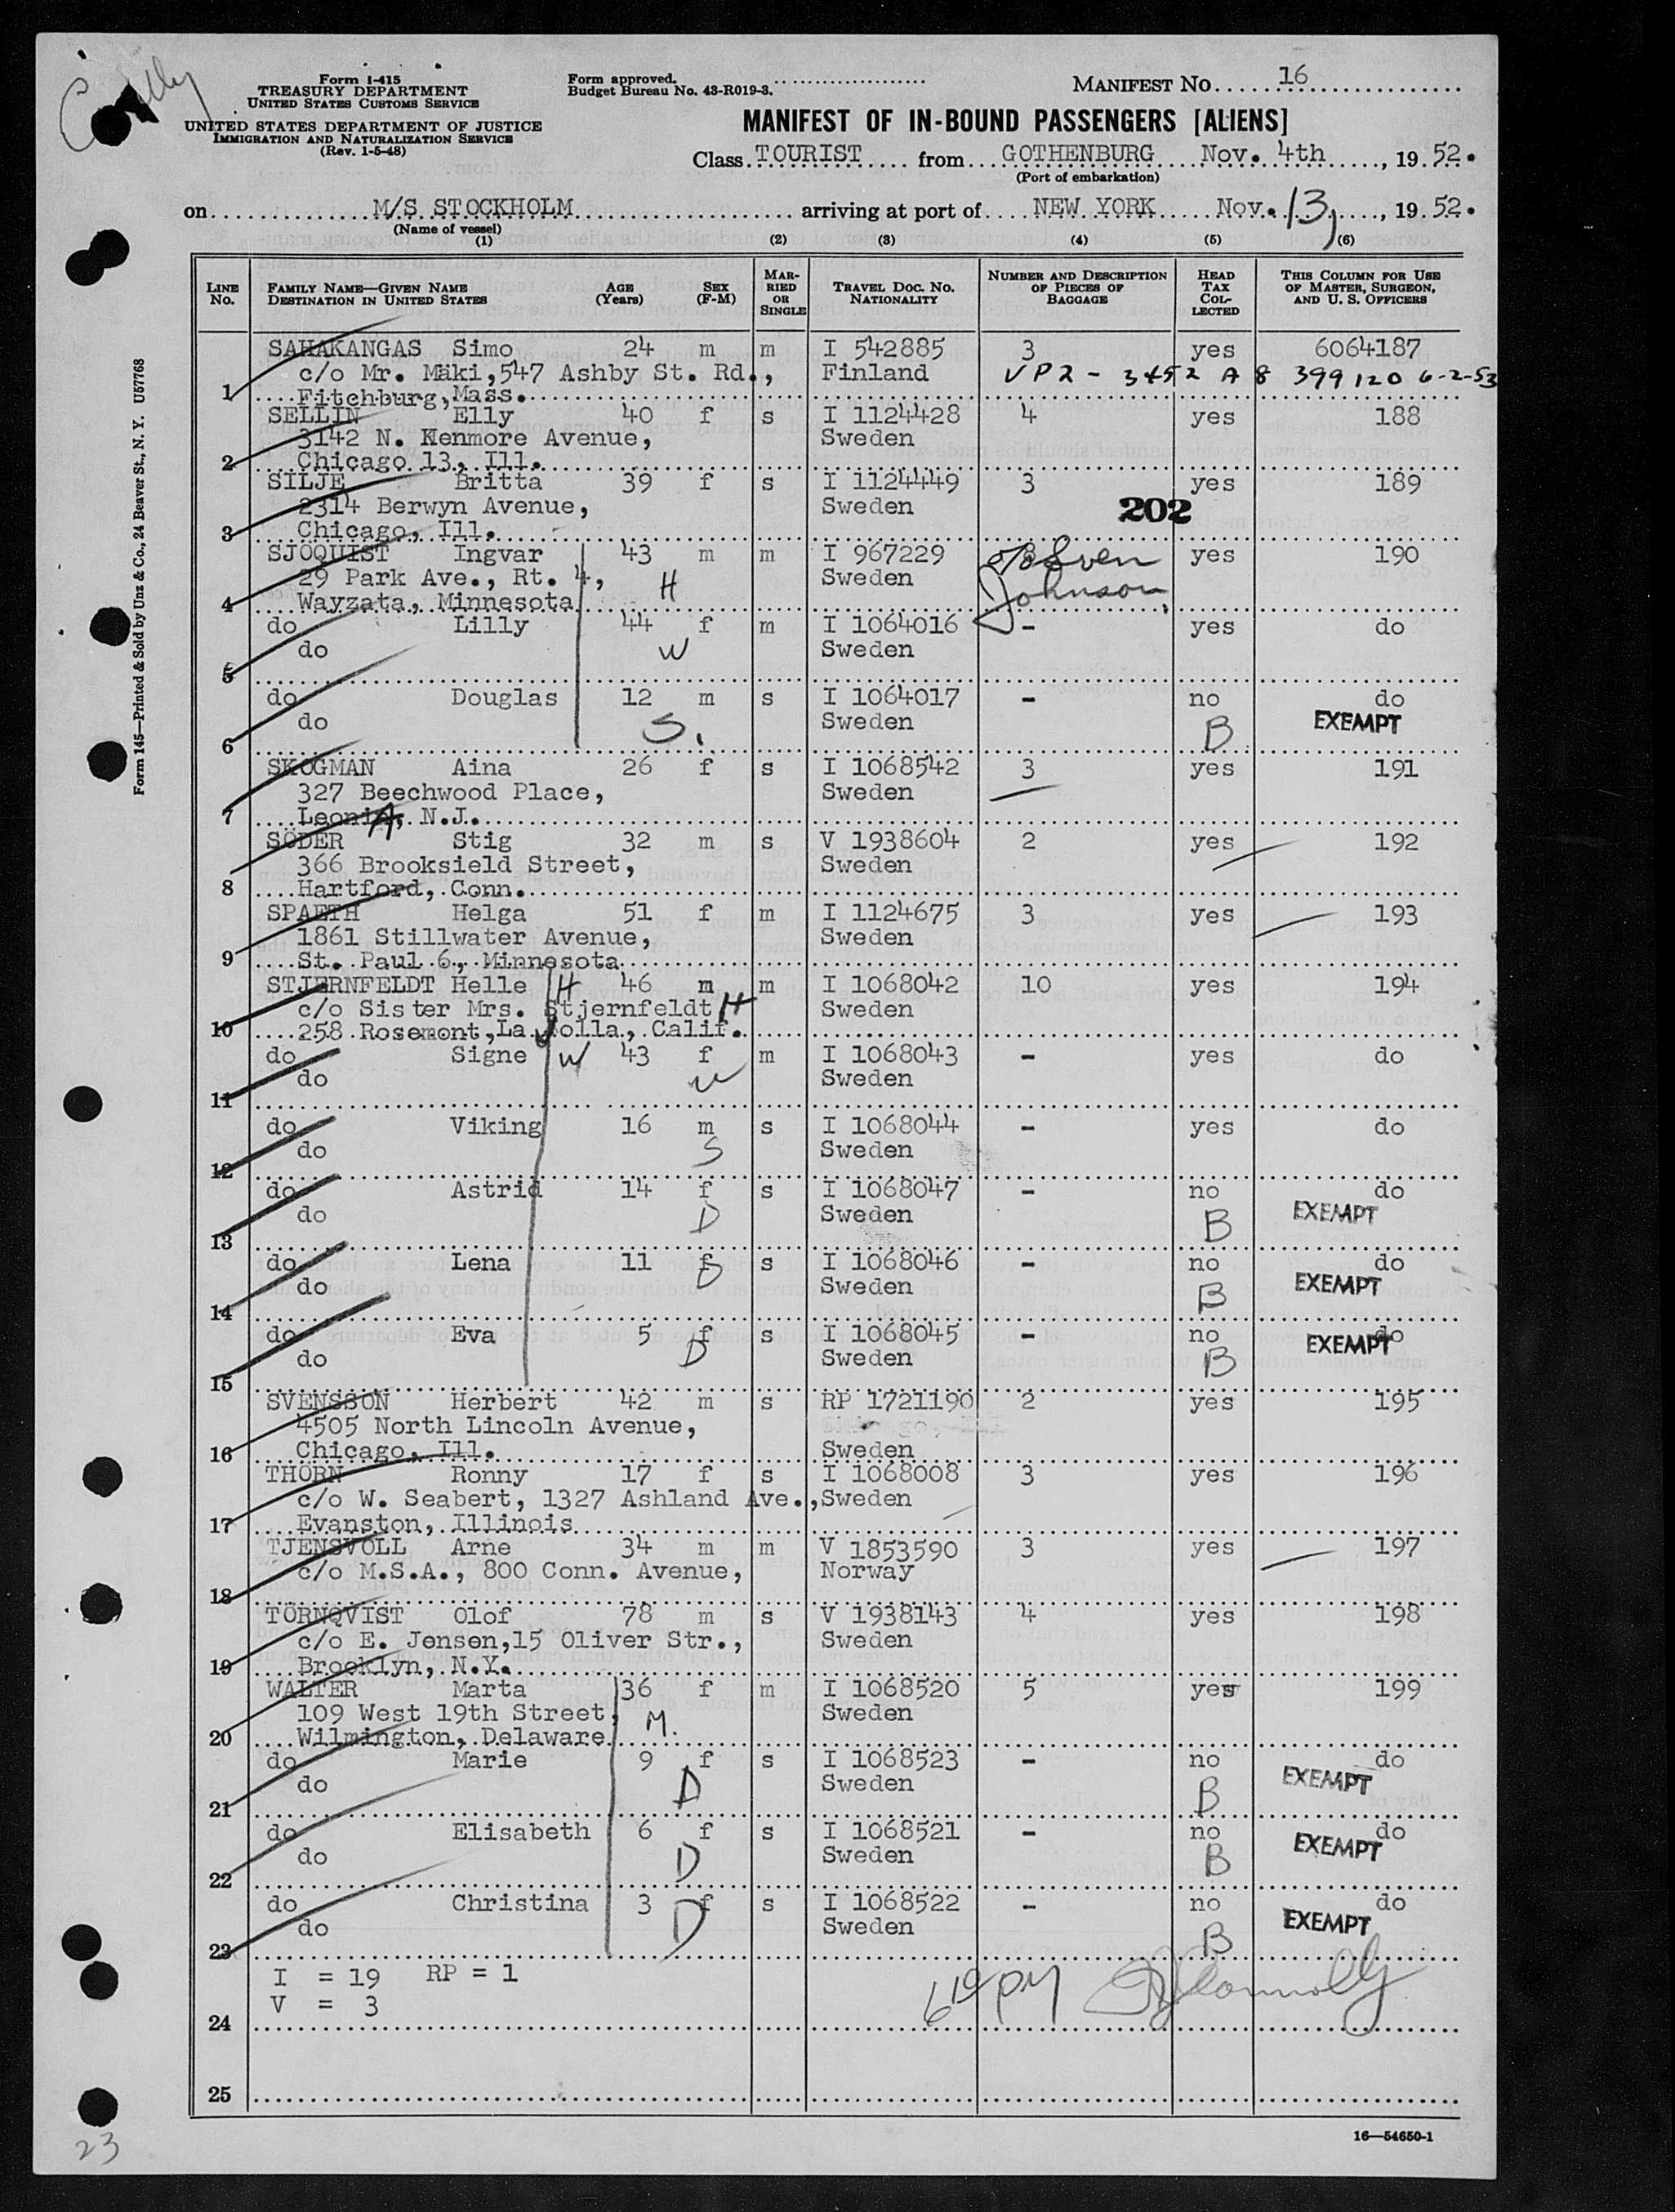 Form I-415
TREASURY DEPARTMENT
UNITED STATES CUSTOMS SERVICE
UNITED STATES DEPARTMENT OF JUSTICE
IMMIGRATION AND NATURALIZATION SERVICE
(Rev. 1-5-48)
Form approved.
Budget Bureau No. 43-R019-3.
MANIFEST NO. 16
MANIFEST OF IN-BOUND PASSENGERS [ALIENS]
Class TOURIST from GOTHENBURG Nov. 4th, 19 52.
(Port of embarkation)
on M/S STOCKHOLM arriving at port of NEW YORK Nov. 13, 19 52.
(Name of vessel)
(1) (2) (3) (4) (5) (6)
LINE NO. FAMILY NAME—GIVEN NAME DESTINATION IN UNITED STATES AGE (Years) SEX (F-M) MARRIED OR SINGLE TRAVEL DOC. NO. NATIONALITY NUMBER AND DESCRIPTION OF PIECES OF BAGGAGE HEAD TAX COLLECTED THIS COLUMN FOR USE OF MASTER, SURGEON, AND U. S. OFFICERS
SAHAKANGAS Simo 24 m m I 542885 3 yes 6064187
c/o Mr. Mäki,547 Ashby St. Rd., Finland VP2 - 3452 A 8 399120 6-2-53
1 Fitchburg,Mass.
SELLIN Elly 40 f s I 1124428 4 yes 188
3142 N. Kenmore Avenue, Sweden
2 Chicago 13, Ill.
SILJE Britta 39 f s I 1124449 3 yes 189
2314 Berwyn Avenue, Sweden 202
3 Chicago, Ill.
SJÖQUIST Ingvar 43 m m I 967229 8 yes 190
29 Park Ave., Rt. 4, H Sweden Sven Johnson
4 Wayzata, Minnesota
do Lilly 44 f m I 1064016 - yes do
do W Sweden
5
do Douglas 12 m s I 1064017 - no do
do S. Sweden B EXEMPT
6
SKOGMAN Aina 26 f s I 1068542 3 yes 191
327 Beechwood Place, Sweden
7 LeoniA, N.J.
SÖDER Stig 32 m s V 1938604 2 yes 192
366 Brooksield Street, Sweden
8 Hartford, Conn.
SPAETH Helga 51 f m I 1124675 3 yes 193
1861 Stillwater Avenue, Sweden
9 St. Paul 6, Minnesota
STJERNFELDT Helle H 46 m m I 1068042 10 yes 194
c/o Sister Mrs. Stjernfeldt H Sweden
10 258 Rosemont,La Jolla, Calif.
do Signe W 43 f m I 1068043 - yes do
do W Sweden
11
do Viking 16 m s I 1068044 - yes do
do S Sweden
12
do Astrid 14 f s I 1068047 - no do
do D Sweden B EXEMPT
13
do Lena 11 f s I 1068046 - no do
do D Sweden B EXEMPT
14
do Eva 5 f s I 1068045 - no do
do D Sweden B EXEMPT
15
SVENSSON Herbert 42 m s RP 1721190 2 yes 195
4505 North Lincoln Avenue,
16 Chicago, Ill. Sweden
THÖRN Ronny 17 f s I 1068008 3 yes 196
c/o W. Seabert, 1327 Ashland Ave., Sweden
17 Evanston, Illinois
TJENSVOLL Arne 34 m m V 1853590 3 yes 197
c/o M.S.A., 800 Conn. Avenue, Norway
18
TÖRNQVIST Olof 78 m s V 1938143 4 yes 198
c/o E. Jensen,15 Oliver Str., Sweden
19 Brooklyn, N.Y.
WALTER Marta 36 f m I 1068520 5 yes 199
109 West 19th Street, M. Sweden
20 Wilmington, Delaware
do Marie 9 f s I 1068523 - no do
do D Sweden B EXEMPT
21
do Elisabeth 6 f s I 1068521 - no do
do D Sweden B EXEMPT
22
do Christina 3 f s I 1068522 - no do
do D Sweden B EXEMPT
23
I = 19 RP = 1
V = 3
6 10 PM Connolly
24
25
16—54650-1
23
Form 145—Printed & Sold by Unz & Co., 24 Beaver St., N. Y. U57768